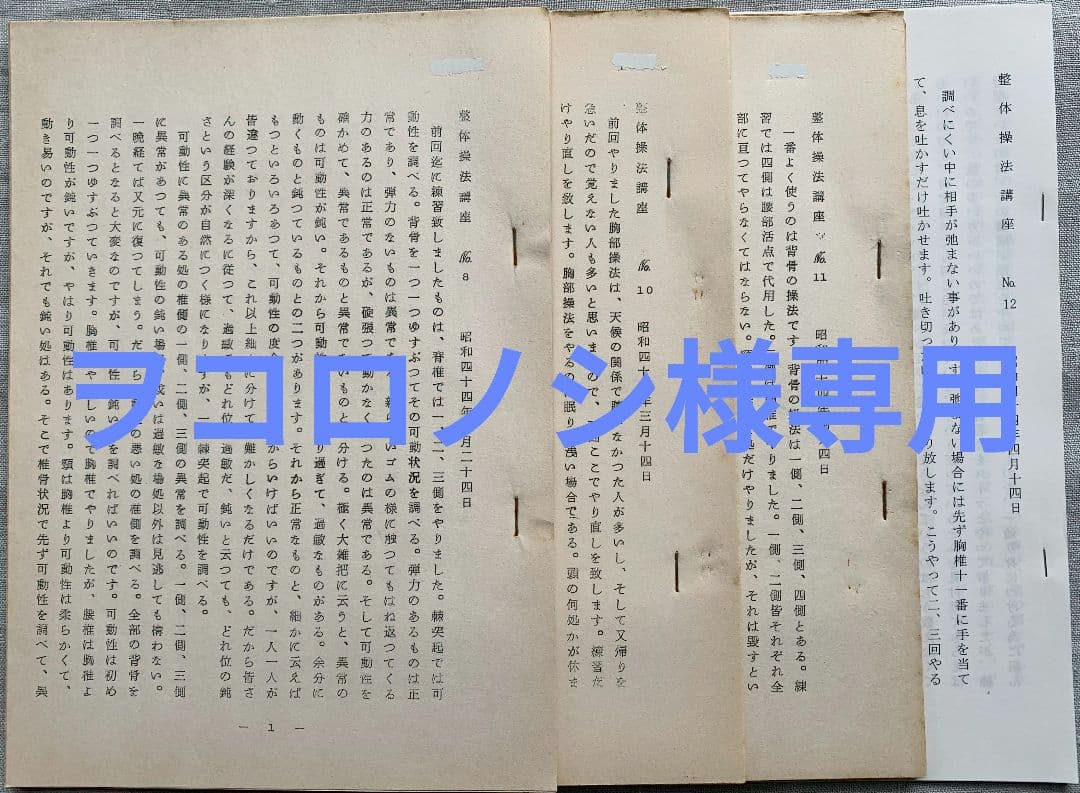 整体操法講座 No.8 昭和四十四年 月二十四日
前回迄に練習致しましたものは、脊椎では一、二、三側をやりました。棘突起では可
動性を調べる。背骨を一つ一つゆすぶつてその可動状況を調べる。弾力のあるものは正
常であり、弾力のないものは異常で ゴムの様に触つてもはね返つてくる
力のあるのは正常であるが、硬張つて動かなく つたのは異常である。そして可動性を
確かめて、異常であるものと異常で いものと 分ける。極く大雑把に云うと、異常の
ものは可動性が鈍い。それから可動性 り過ぎて、過敏なものがある。余分に
動くものと鈍つているものとの二つがあります。それから正常なものと、細かに云えば
もつといろいろあつて、可動性の度合 からいけばいいのですが、一人一人が
皆違つておりますから、これ以上細かに分けて 難かしくなるだけである。だから皆さ
んの経験が深くなるに従つて、過敏でもどれ位 過敏だ、鈍いと云つても、どれ位の鈍
さという区分が自然につく様になり すが、一 棘突起で可動性を調べる。
可動性に異常のある処の椎側の一側、二側、三側の異常を調べる。一側、二側、三側
に異常があつても、可動性の鈍い場 或いは過敏な場処以外は見逃しても構わない。
一晩経てば又元に復つてしまう。だから の悪い処の椎側を調べる。全部の背骨を
調べるとなると大変なのですが、可動性 鈍い を調べればいいのです。可動性は初め
一つ一つゆすぶつていきます。胸椎 やさしいので胸椎でやりましたが、腰椎は胸椎よ
り可動性が鈍いですが、やはり可動性はあります。頸は胸椎より可動性は柔らかくて、
動き易いのですが、それでも鈍い処はある。そこで椎骨状況で先ず可動性を調べて、異
— 1 —
整体操法講座 No.10 昭和四十 年三月十四日
前回やりました胸部操法は、天候の関係で なかつた人が多いし、そして又帰りを
急いだので覚えない人も多いと思いま ので、 ここでやり直しを致します。練習だ
けやり直しを致します。胸部操法をやるのは眠り 浅い場合である。頭の何処かが休ま
整体操法講座 No.11 昭和四十四年 四日
一番よく使うのは背骨の操法です。背骨の操法は一側、二側、三側、四側とある。練
習では四側は腰部活点で代用した。 りました。一側、二側皆それぞれ全
部に亘つてやらなくてはならない。 処だけやりましたが、それは毀すとい
整体操法講座 No.12 四年四月十四日
調べにくい中に相手が弛まない事があります。弛 ない場合には先ず胸椎十一番に手を当
て、息を吐かすだけ吐かせます。吐き切っ り放します。こうやって二、三回やる
フコロノシ様専用